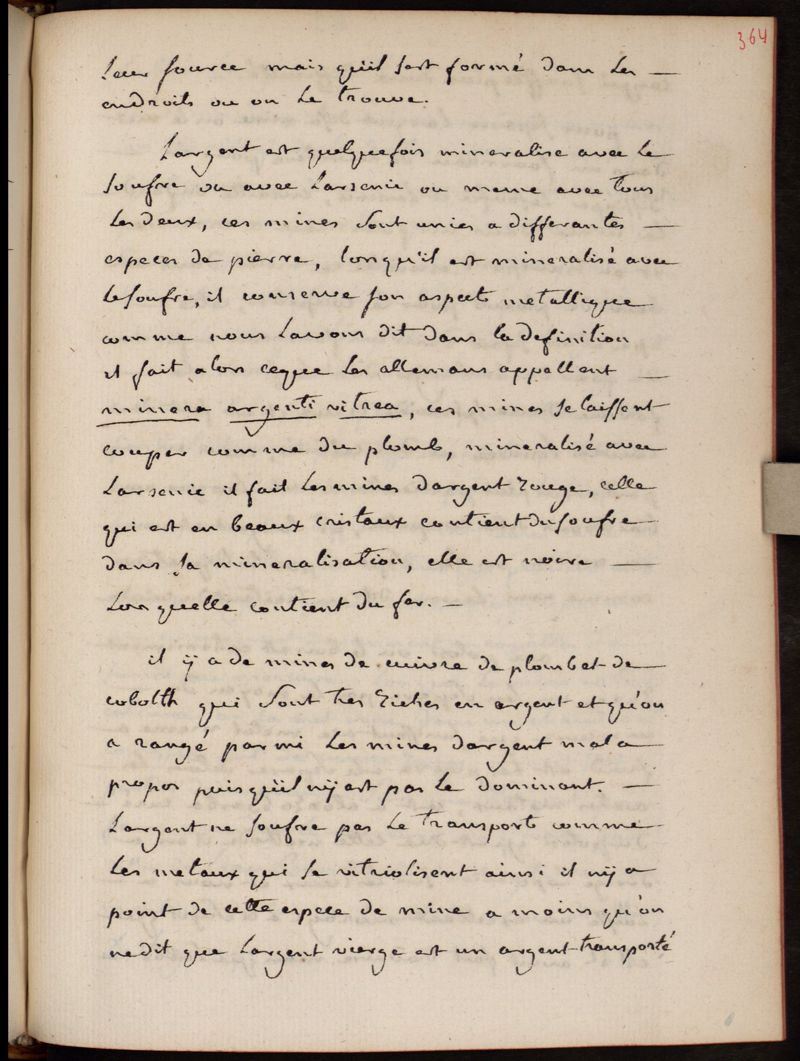 364
Leur source mais qu'il sest formé dans les —
endroits ou on le trouve.
Largent est quelquefois mineralise avec le
soufre ou avec Larsenic ou meme avec tous
les deux, ces mines sont unies a differantes —
especes de pierre, lorsqu'il est mineralisé avec
le soufre, il conserve son aspect metallique
comme nous Lavons dit dans la definition
il fait alors ceque les allemans appellent —
minera argenti vitrea, ces mines se laissent
couper comme du plomb, mineralisé avec
Larsenic il fait les mines dargent rouge, celle
qui est en beaux cristaux contient du soufre
dans sa mineralisation, elle est noire —
Lorsquelle contient du fer. —
il ÿ a de mines de cuivre de plomb et de
cobolth qui sont tres riches en argent et qu'on
a rangé parmi les mines dargent mal a
propos puisqu'il nÿ est pas le dominant. —
Largent ne soufre pas le transport comme
les metaux qui se vitriolisent ainsi il nÿ a
point de cette espece de mine a moins qu'on
ne dit que Largent vierge est un argent transporté